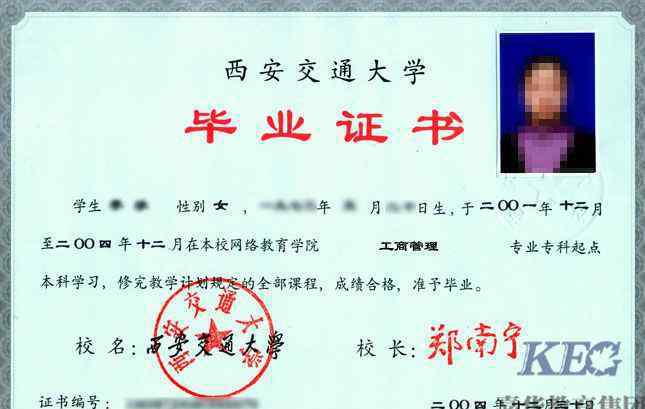 西安交通大学
毕业证书
学生 性别 女 , 年 月 日生，于二〇〇一年十二月
至二〇〇四年十二月在本校网络教育学院 工商管理 专业专科起点
本科学习，修完教学计划规定的全部课程，成绩合格，准予毕业。
西安交通大学
校 名：西安交通大學 校 长：郑南宁
KEG
证书编号：
二〇〇四年十二月三十日